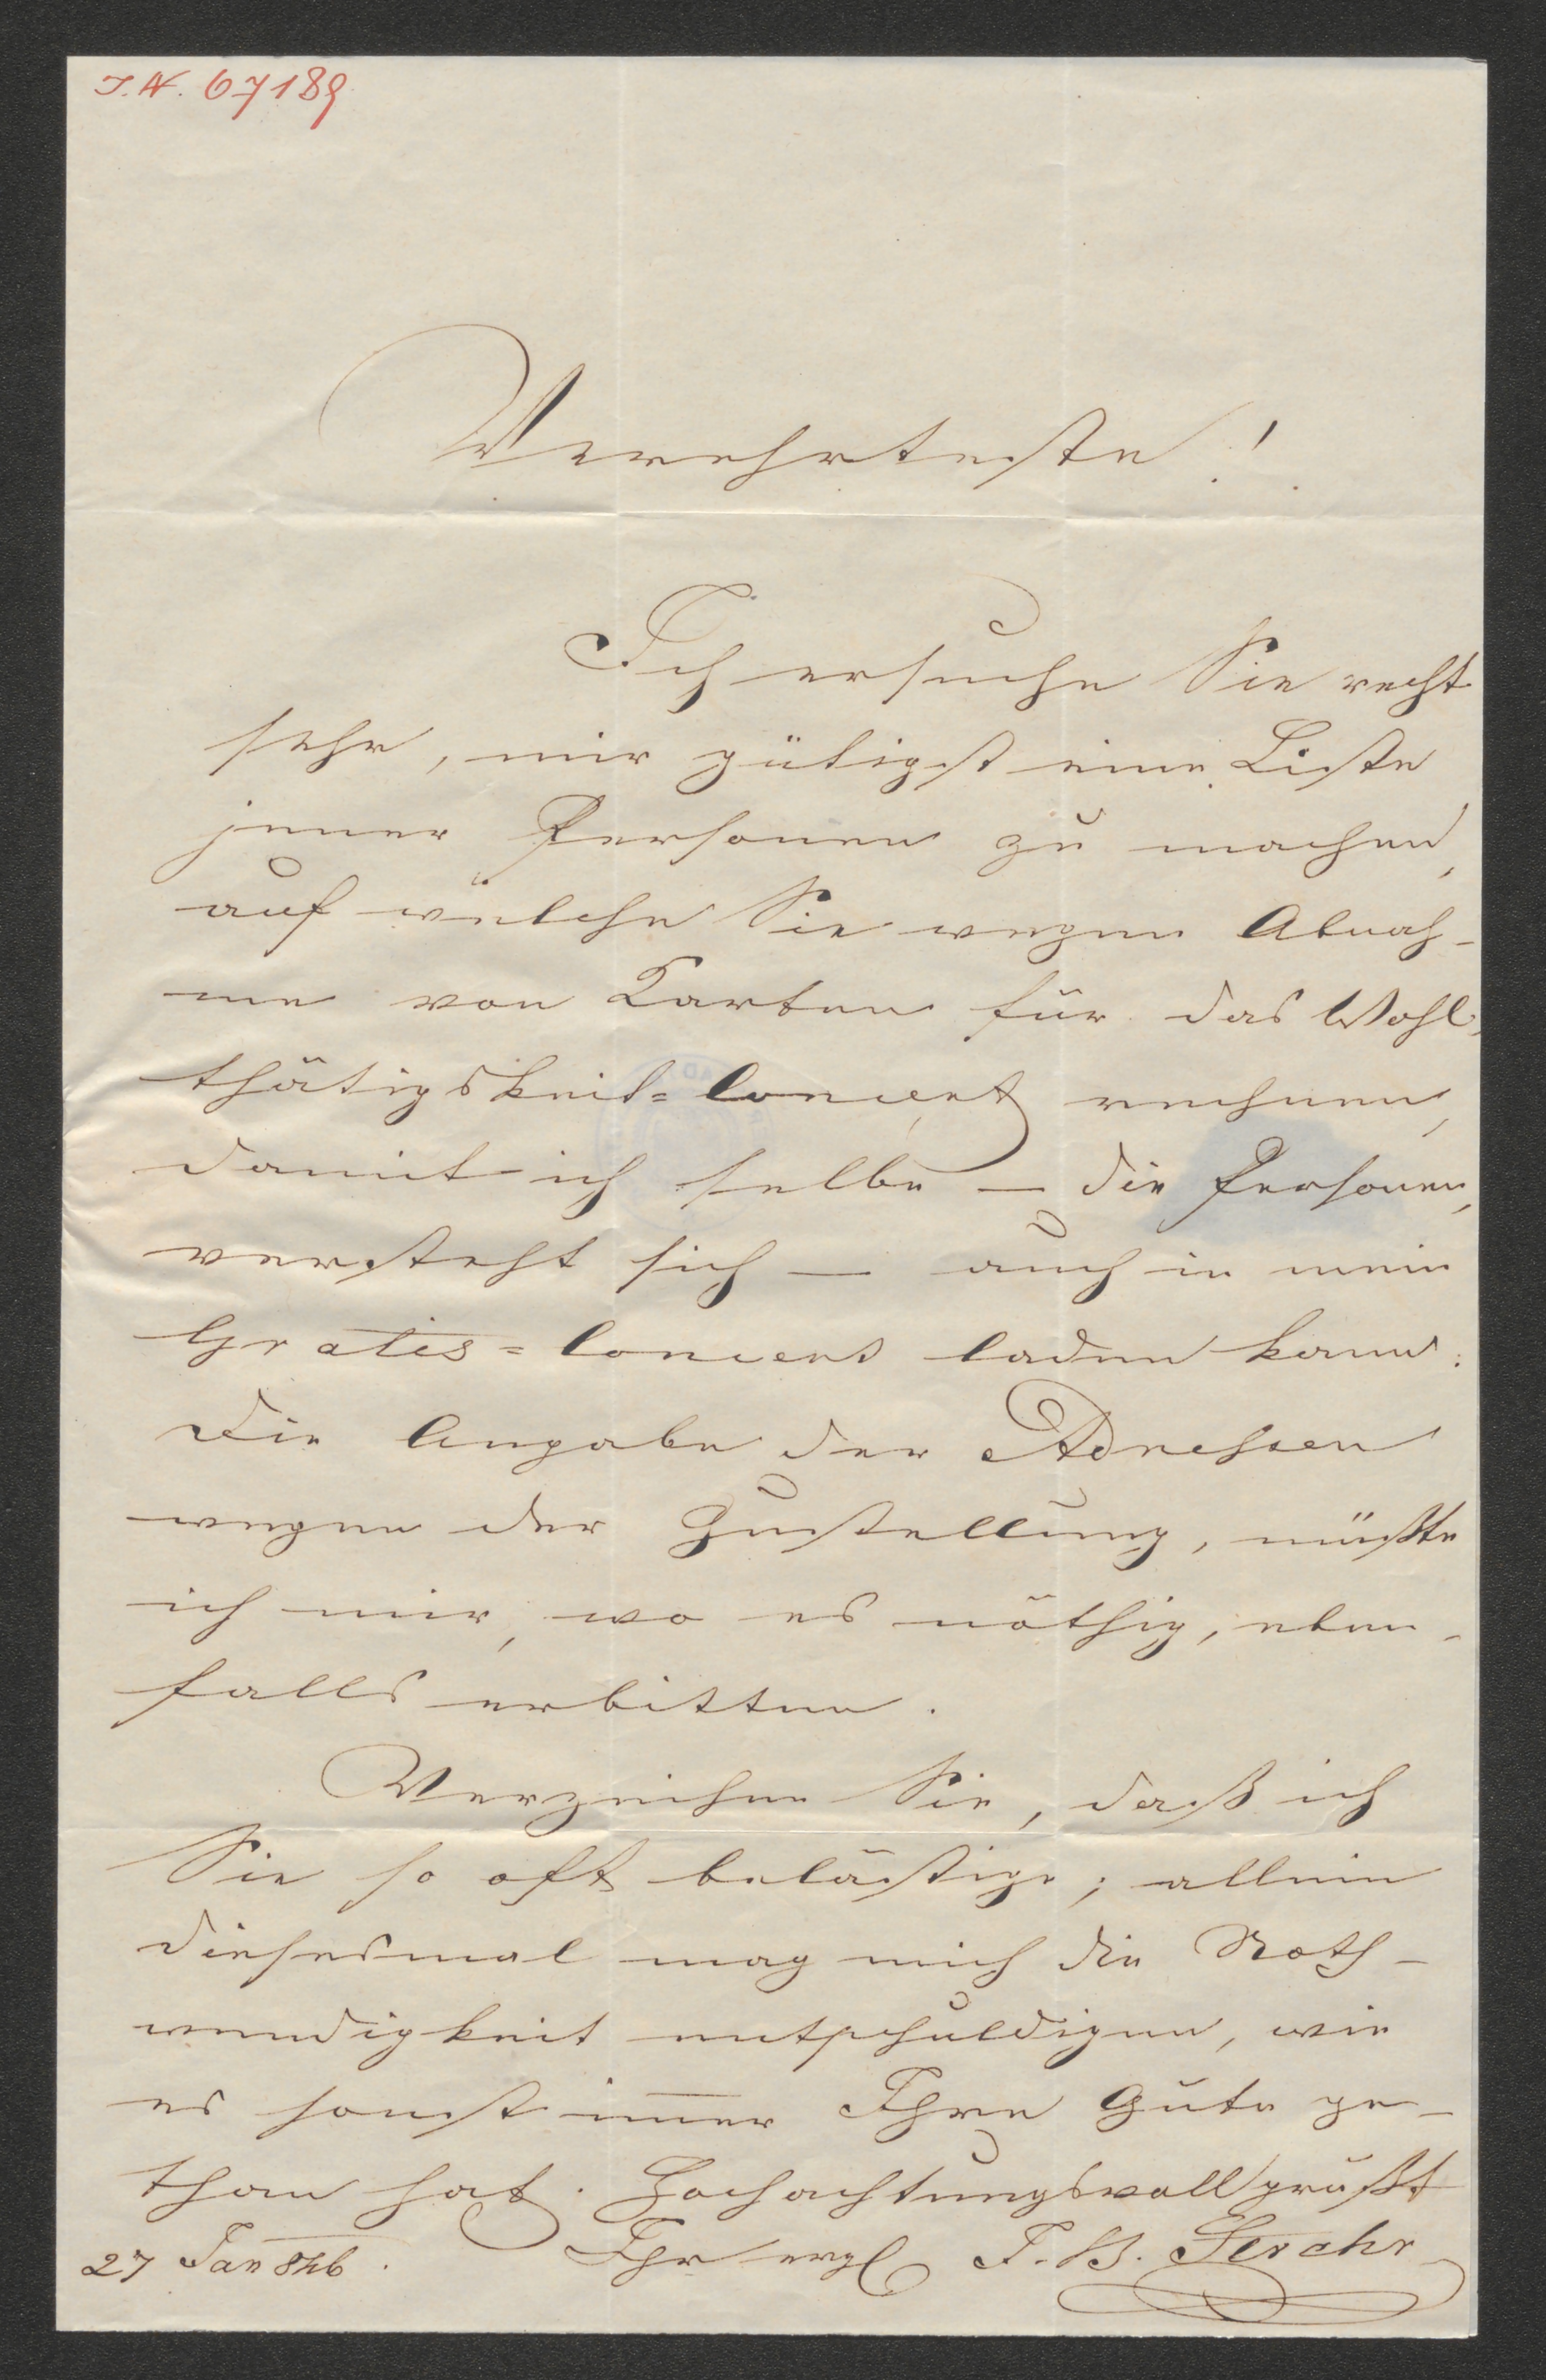 I. N. 67189
Verehrteste!
Ich ersuche Sie recht
sehr, mir gütigst eine Liste
jener Personen zu machen,
auf welche Sie wegen Abnah-
me von Karten für das Wohl-
thätigskeit=Concert rechnen,
damit ich selbe — die Personen,
versteht sich — auch in mein
Gratis=Concert laden kann.
Die Angabe der Adressen
wegen der Zustellung, müßte
ich mir, wo es nöthig, eben-
falls erbitten.
Verzeihen Sie, daß ich
Sie so oft belästige; allein
diesesmal mag mich die Noth-
wendigkeit entschuldigen, wie
es sonst im̅er Ihre Güte ge-
than hat. Hochachtungsvoll grüßt
27 Jan 846. Ihr erg F. W.